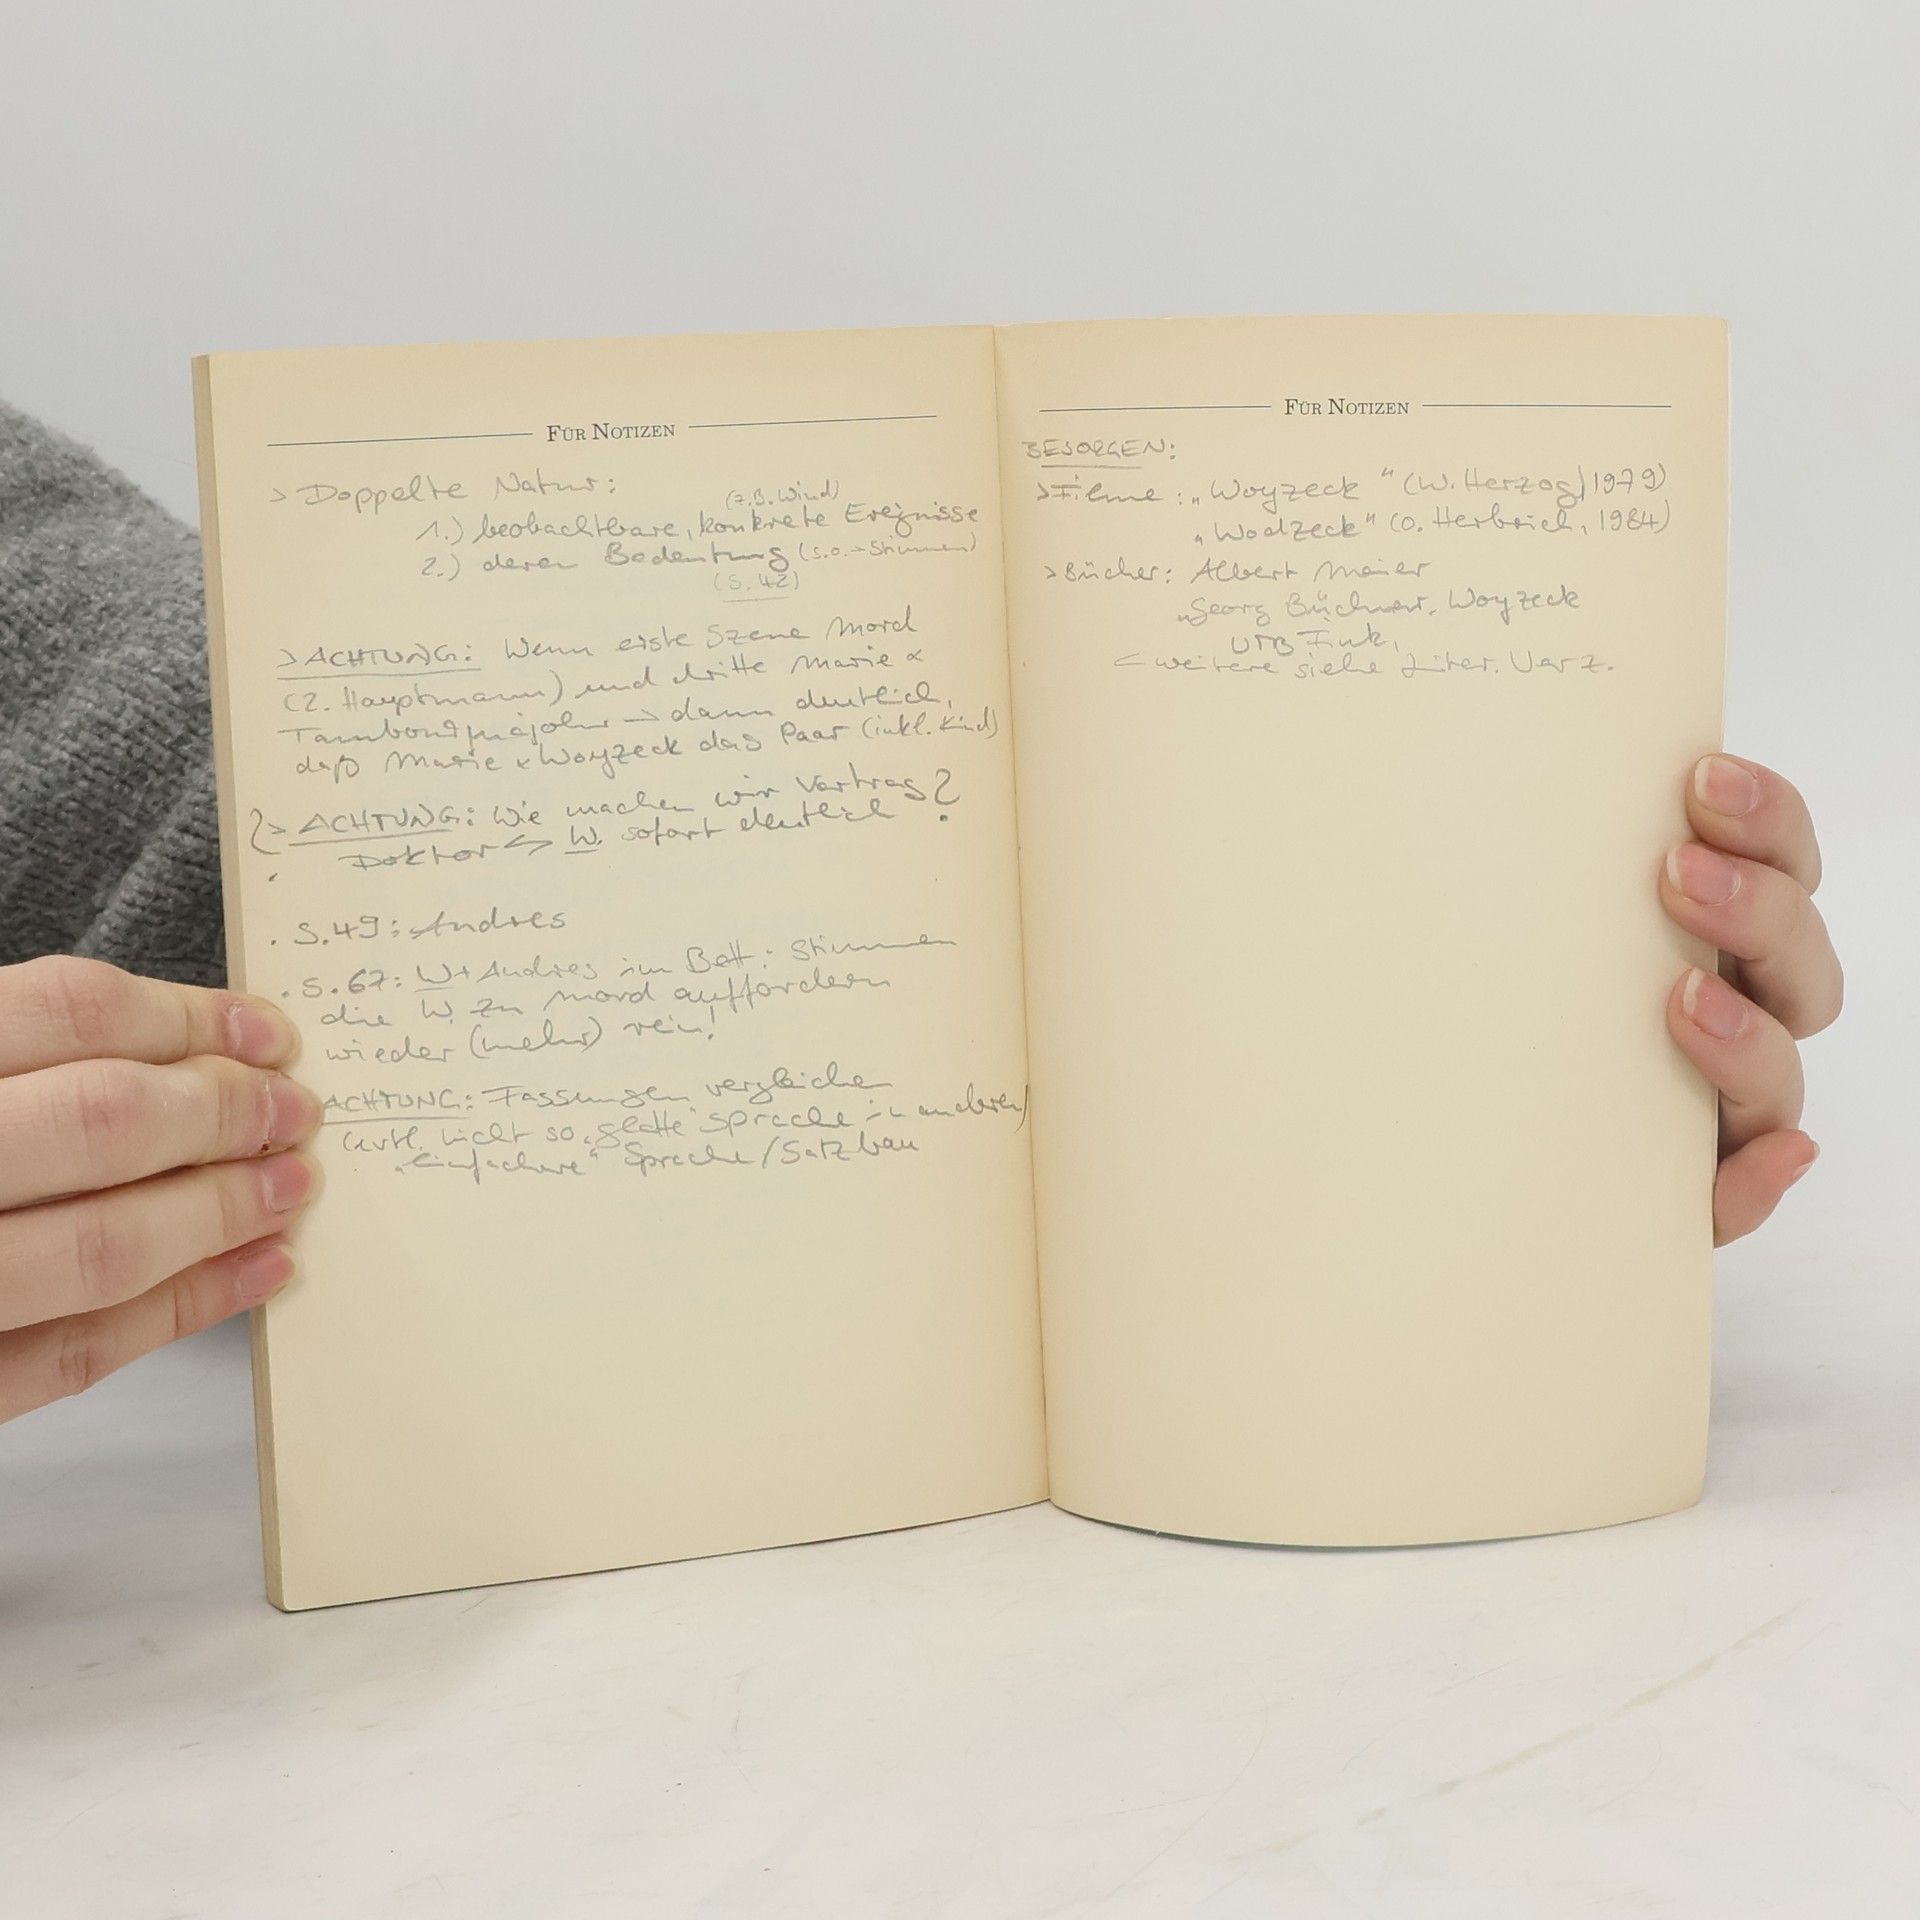 FÜR NOTIZEN
> Doppelte Natur:
(z.B. Wind)
1.) beobachtbare, konkrete Ereignisse
2.) deren Bedeutung (s.o. → Stimmen)
(S. 42)
> ACHTUNG: Wenn erste Szene Mord
(2. Hauptmann) und dritte Marie &
Tambourmajor → dann deutlich,
daß Marie & Woyzeck das Paar (inkl. Kind)
?> ACHTUNG: Wie machen wir Vertrag ?
Doktor <> W. sofort deutlich
. S. 49: Andres
. S. 67: W + Andres im Bett: Stimmen
die W. zu Mord auffordern
wieder (mehr) rein!
ACHTUNG: Fassungen vergleichen
(evtl. nicht so „glatte“ Sprache in anderen /
„einfachere“ Sprache / Satzbau
FÜR NOTIZEN
BESORGEN:
> Filme: „Woyzeck“ (W. Herzog, 1979)
„Wodzeck“ (O. Herbrich, 1984)
> Bücher: Albert Meier
„Georg Büchner, Woyzeck
UTB Fink,
< weitere siehe Liter. Verz.